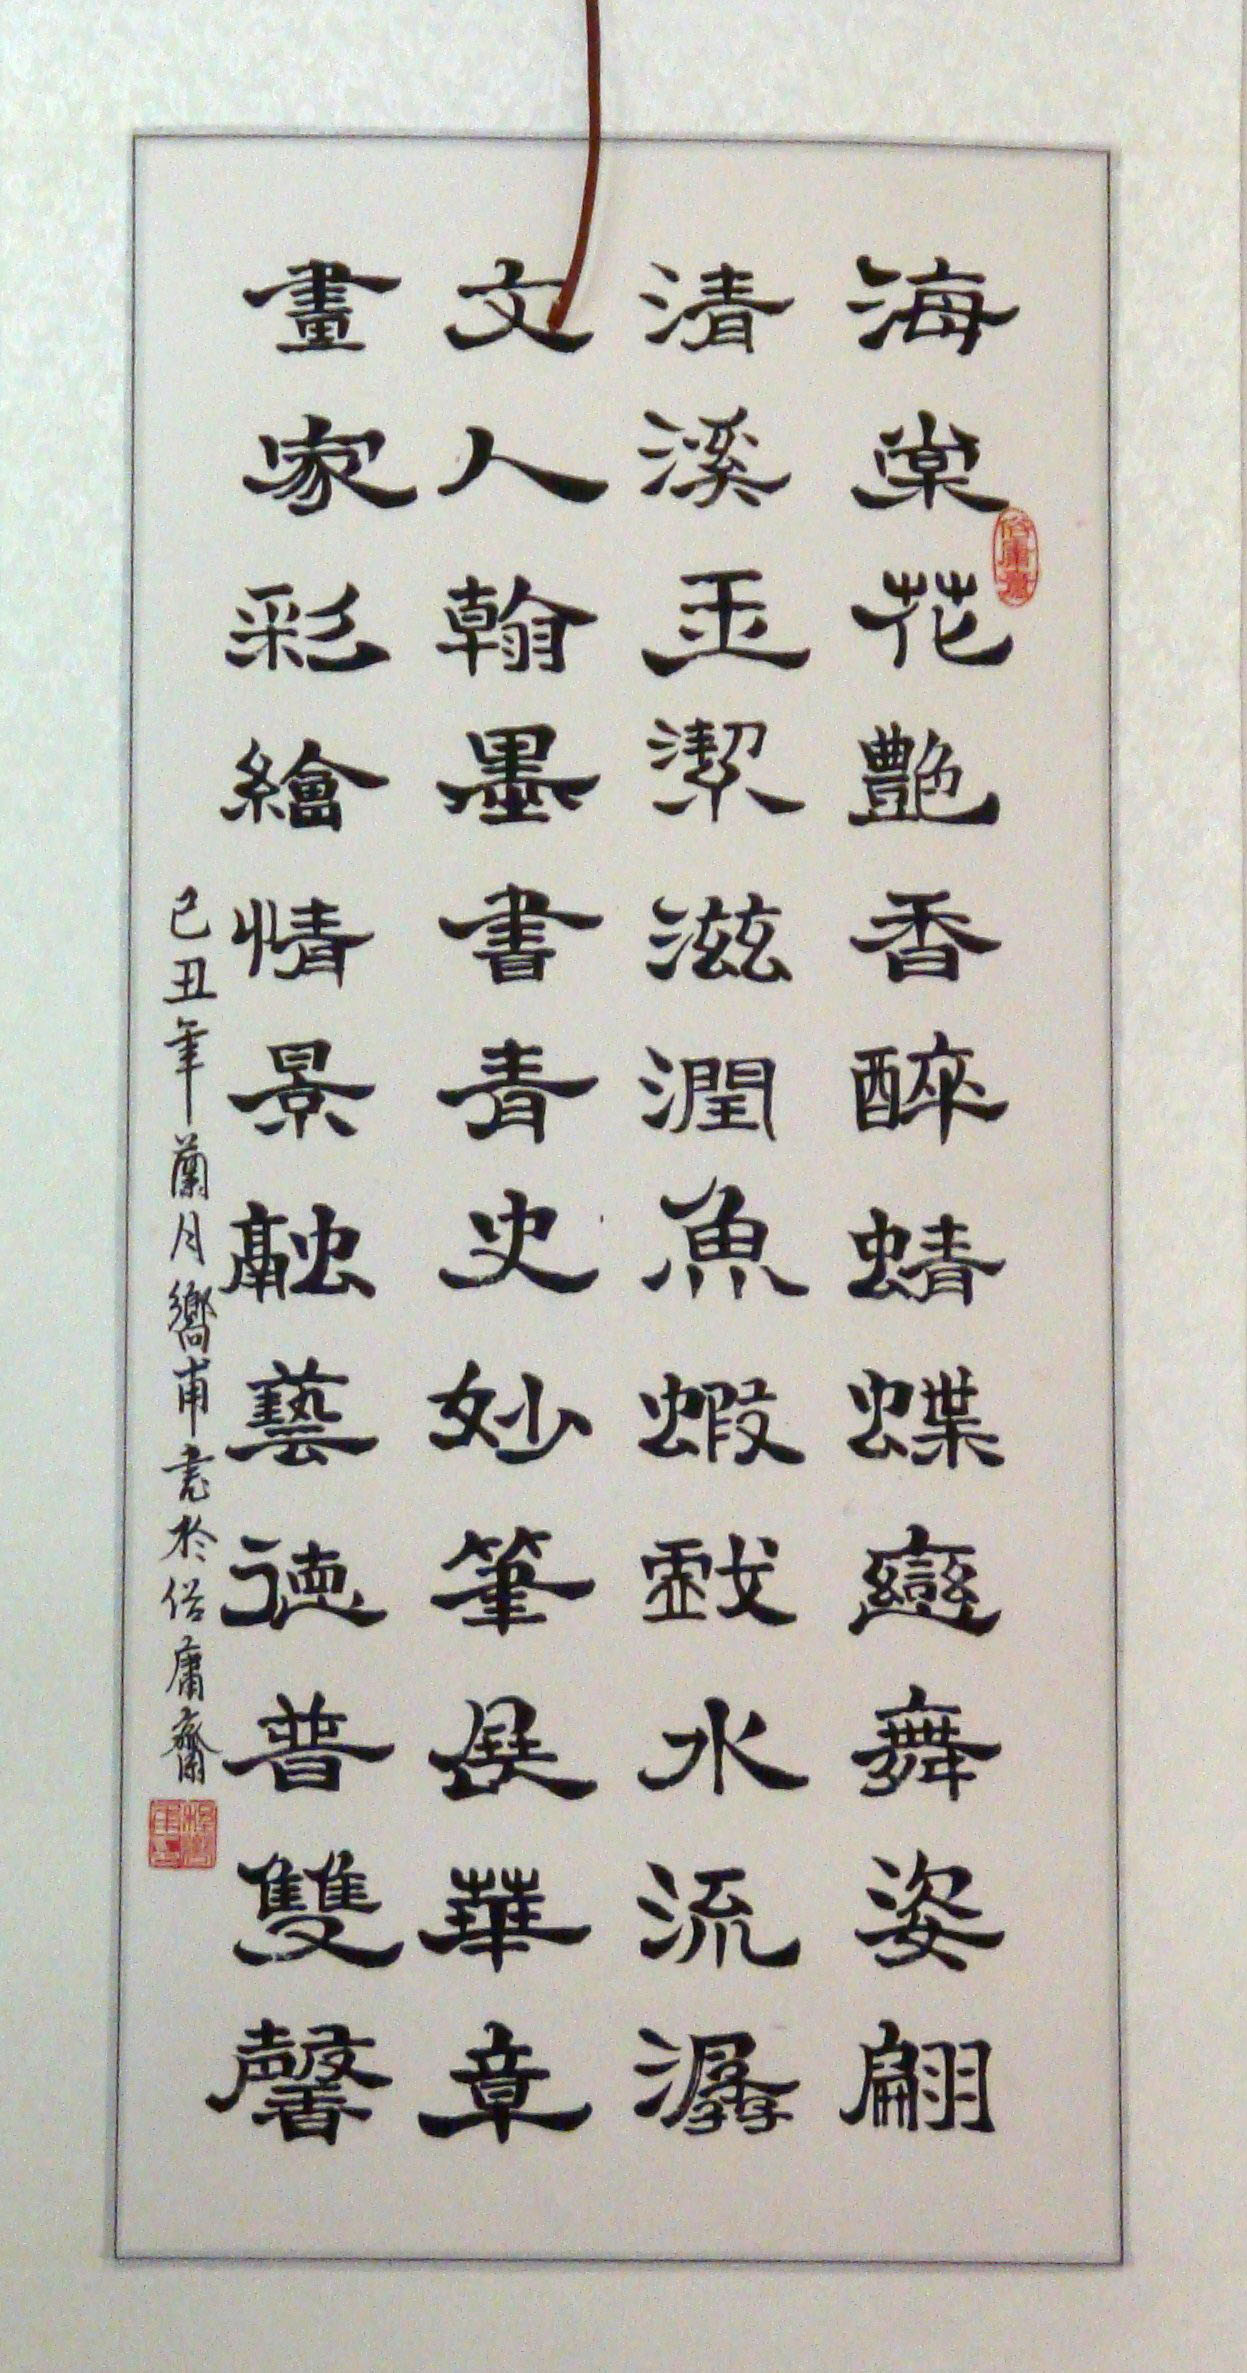 海棠花艷香醉蜻蝶戀舞姿翩
清溪玉潔滋潤魚蝦戲水流潺
文人翰墨書青史妙筆展華章
畫家彩繪情景融藝德普雙馨
己丑年蘭月嚮甫書於俗庸齋
俗庸齋